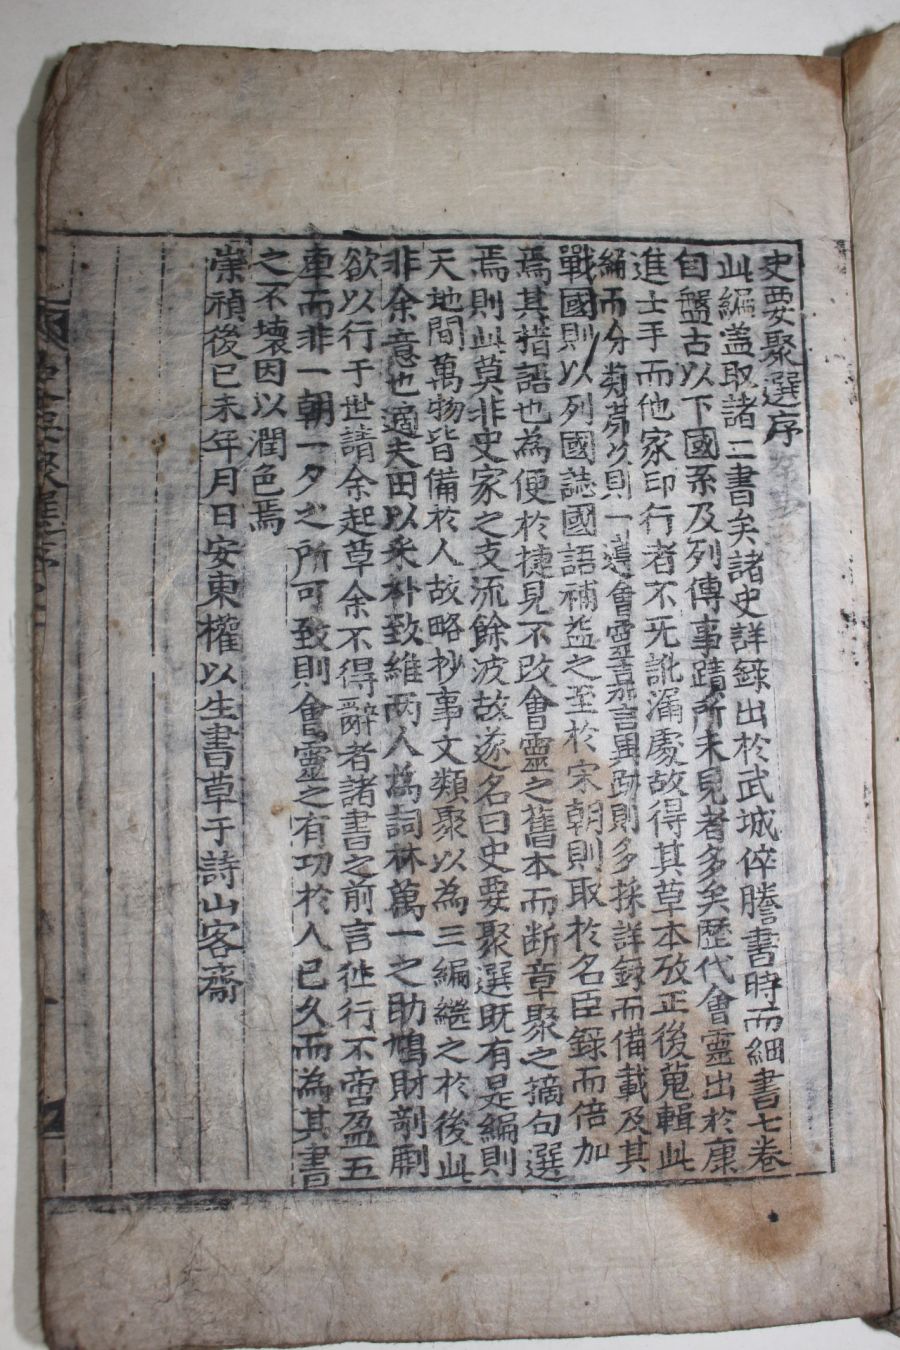 史要聚選序
此編盖取諸三書矣諸史詳錄出於武城倅謄書時而細書七卷
自盤古以下國系及列傳事蹟所未見者多矣歷代會靈出於康
進士手而他家印行者不无訛漏處故得其草本攷正後蒐輯此
編而分類焉以則一遵會靈言異跡則多採詳錄而備載及其
戰國則以列國誌國語補益之至於宋朝則取於名臣錄而倍加
焉其措語也為便於捷見不改會靈之舊本而断章聚之摘句選
焉則此莫非史家之支流餘波故遂名曰史要聚選既有是編則
天地間萬物皆備於人故略抄事文類聚以為三編継之於後此
非余意也適夫田以采朴致維两人為詞林萬一之助鳩財剞劂
欲以行于世請余起草余不得辭者諸書之前言徃行不啻盈五
車而非一朝一夕之所可致則會靈之有功於人已久而為其書
之不壊因以潤色焉
崇禎後己未年月日安東權以生書草于詩山客齋